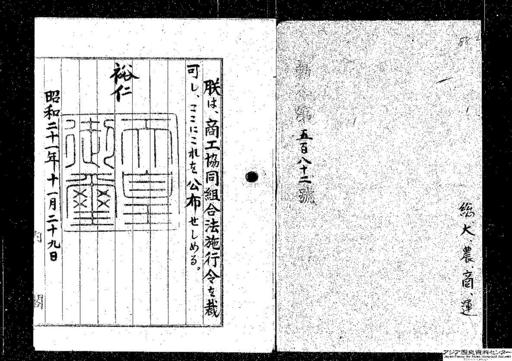 勅令第五百八十二號
総大、農、商、運
朕は、商工協同組合法施行令を裁
可し、ここにこれを公布せしめる。
裕仁
天皇
御璽
昭和二十一年十一月二十九日
内閣
アジア歴史資料センター